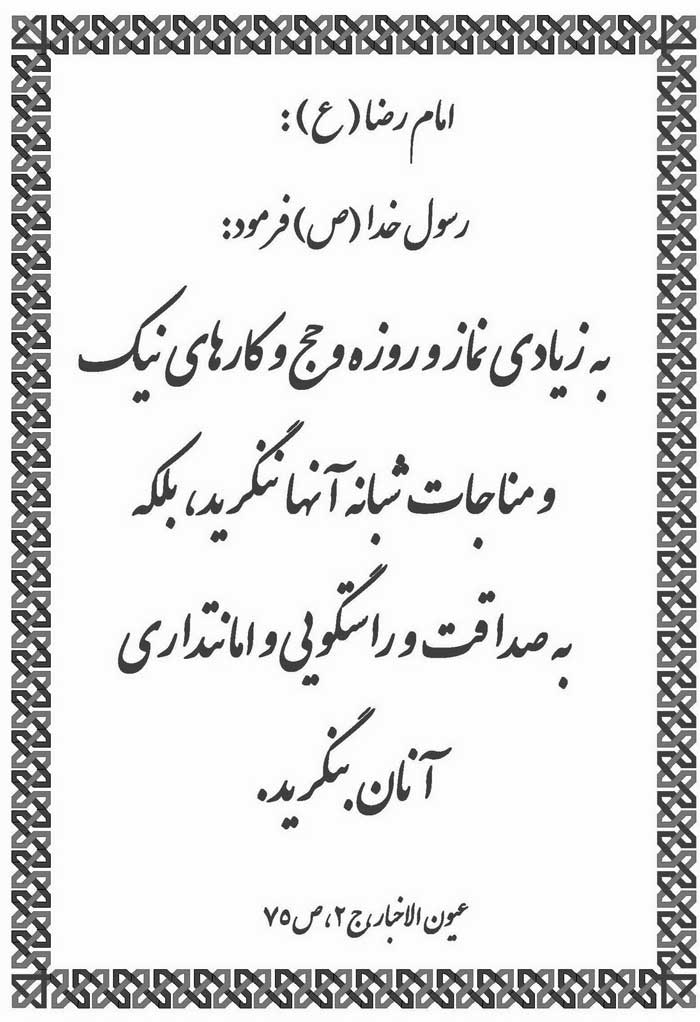 امام رضا (ع):
رسول خدا (ص) فرمود:
به زیادی نماز و روزه و حج و کارهای نیک
و مناجات شبانه آنها ننگرید، بلکه
به صداقت و راستگویی و امانتداری
آنان بنگرید.
عیون الاخبار، ج ۲، ص ۷۵